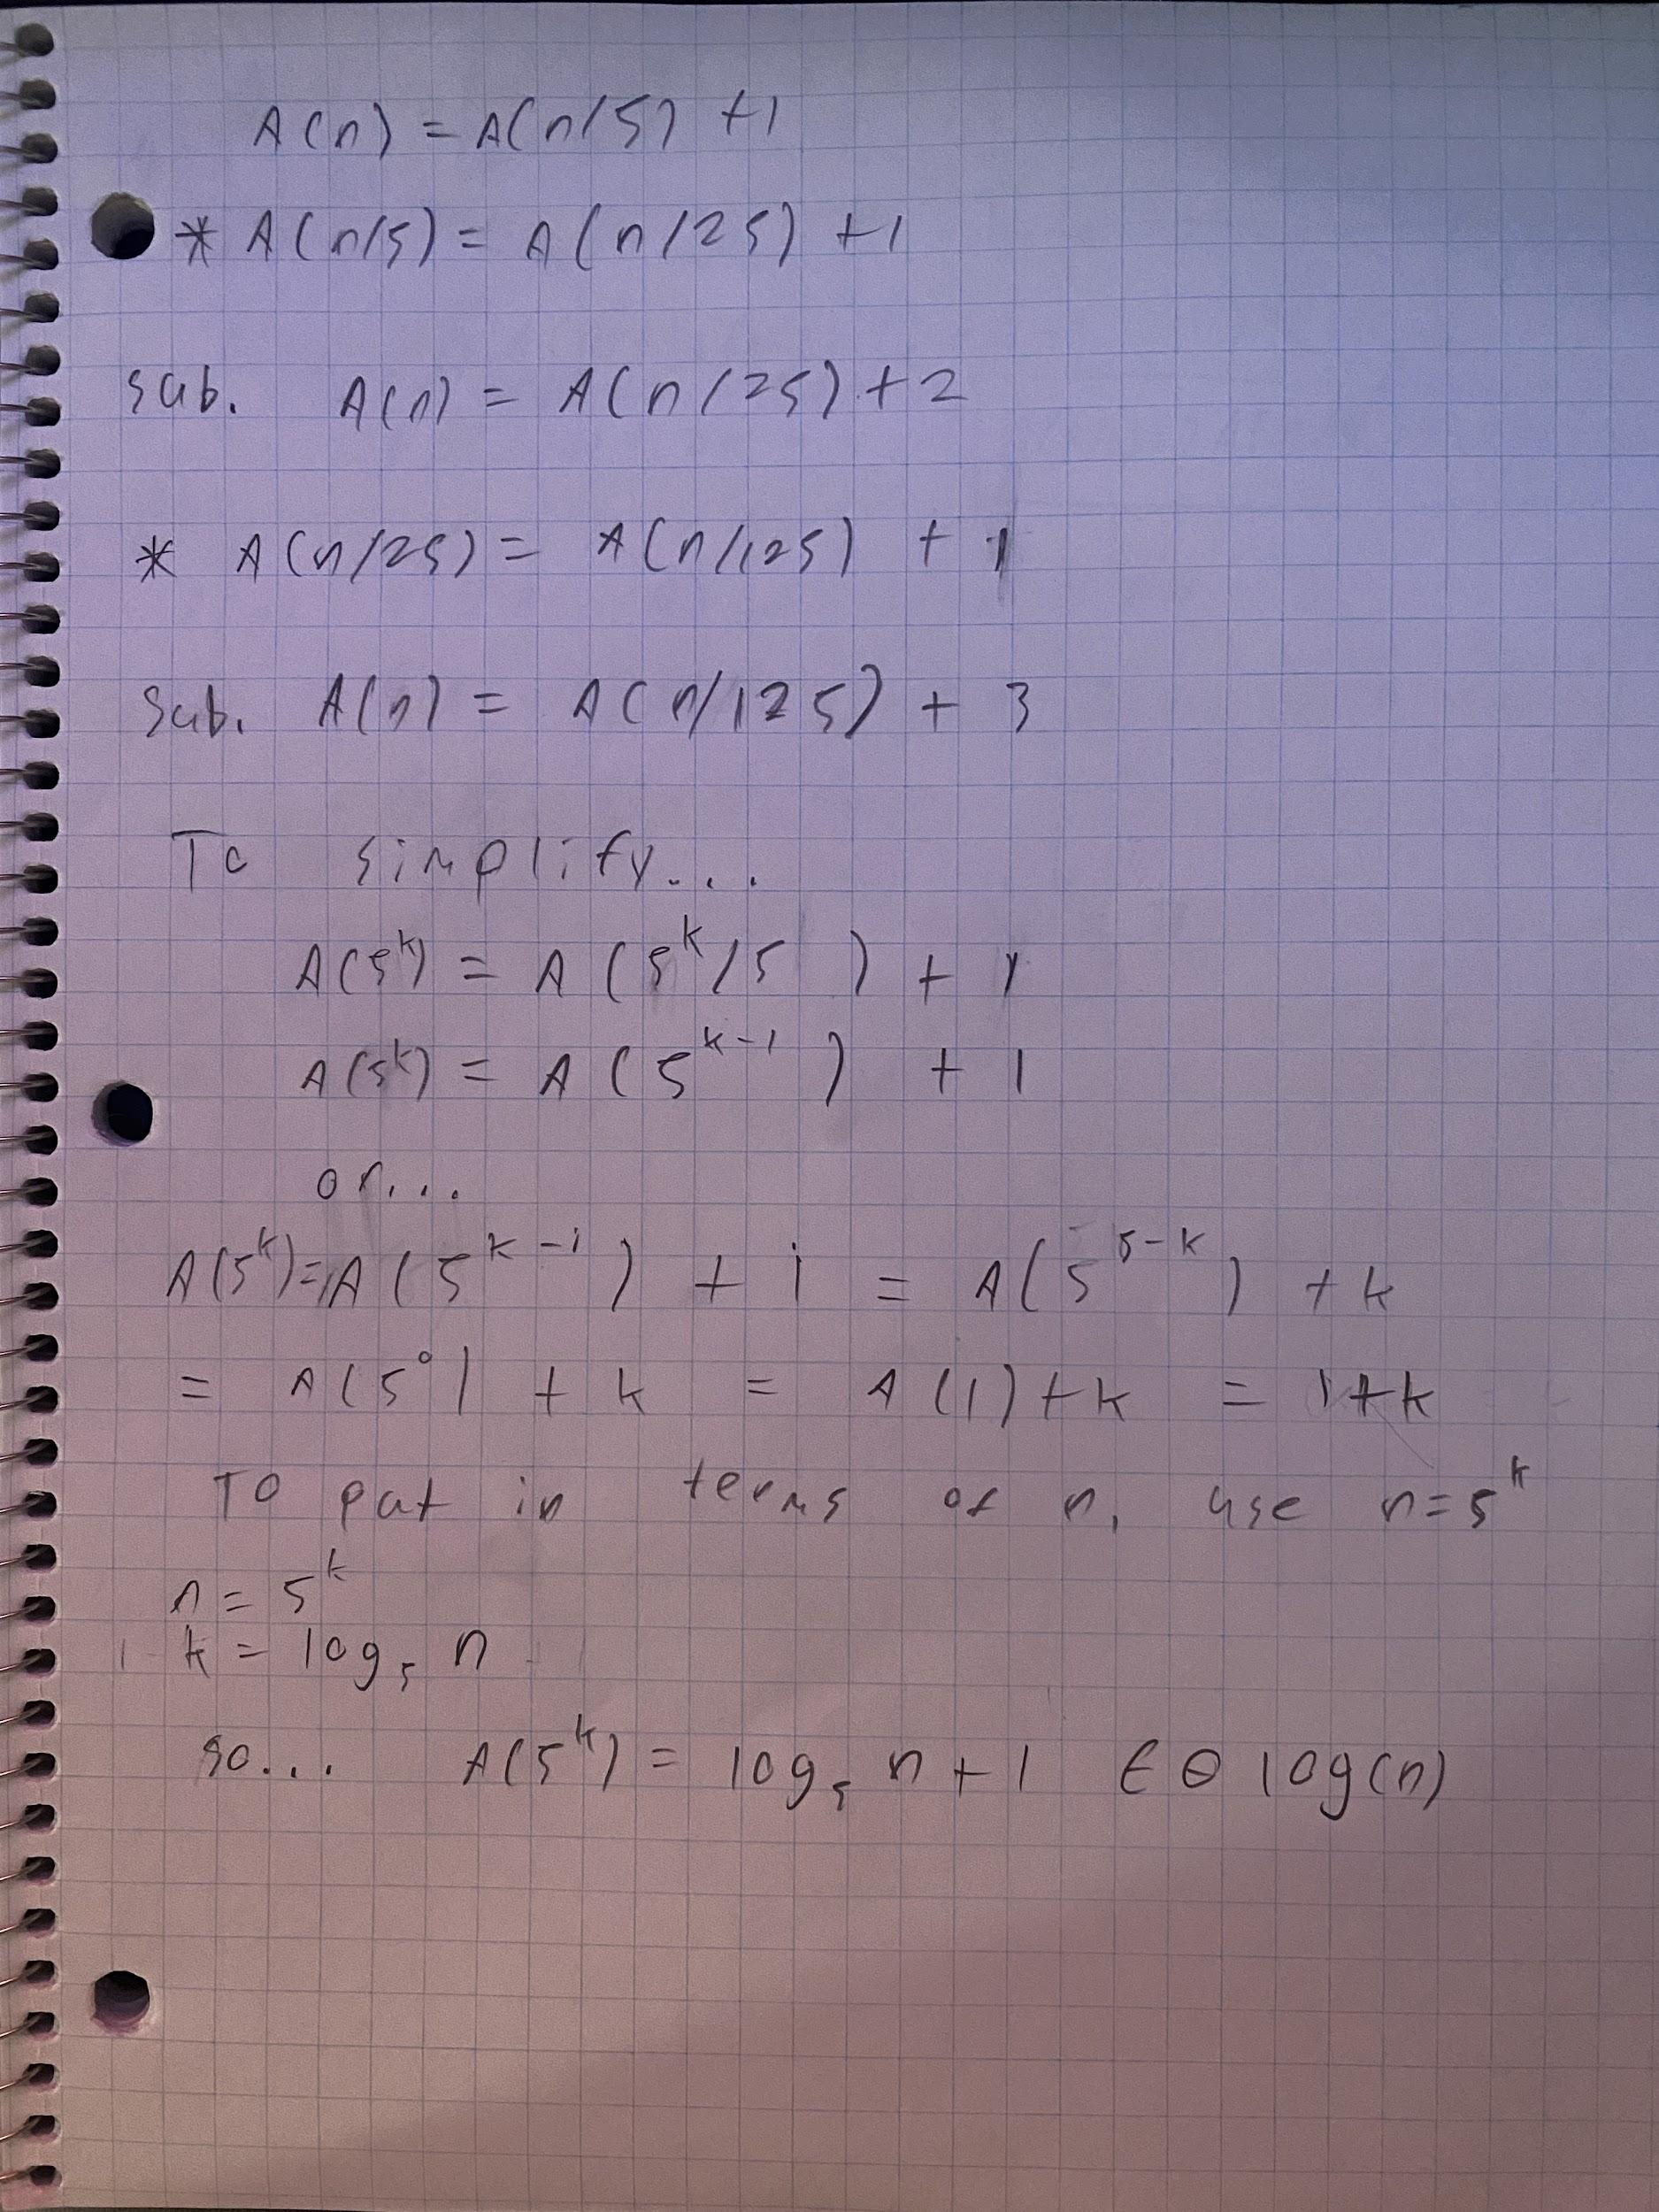 A(n) = A(n/5) +1
* A(n/5) = A(n/25) +1
sub. A(n) = A(n/25) + 2
* A(n/25) = A(n/125) + 1
sub. A(n) = A(n/125) + 3
To simplify...
A(5^k) = A(5^k/5) + 1
A(5^k) = A(5^k-1) + 1
or...
A(5^k) = A(5^k-i) + i = A(5^5-k) + k
= A(5^0) + k = A(1) + k = 1+k
To put in terms of n, use n=5^k
n = 5^k
k = log₅ n
so... A(5^k) = log₅ n + 1 ∈ Θ log(n)